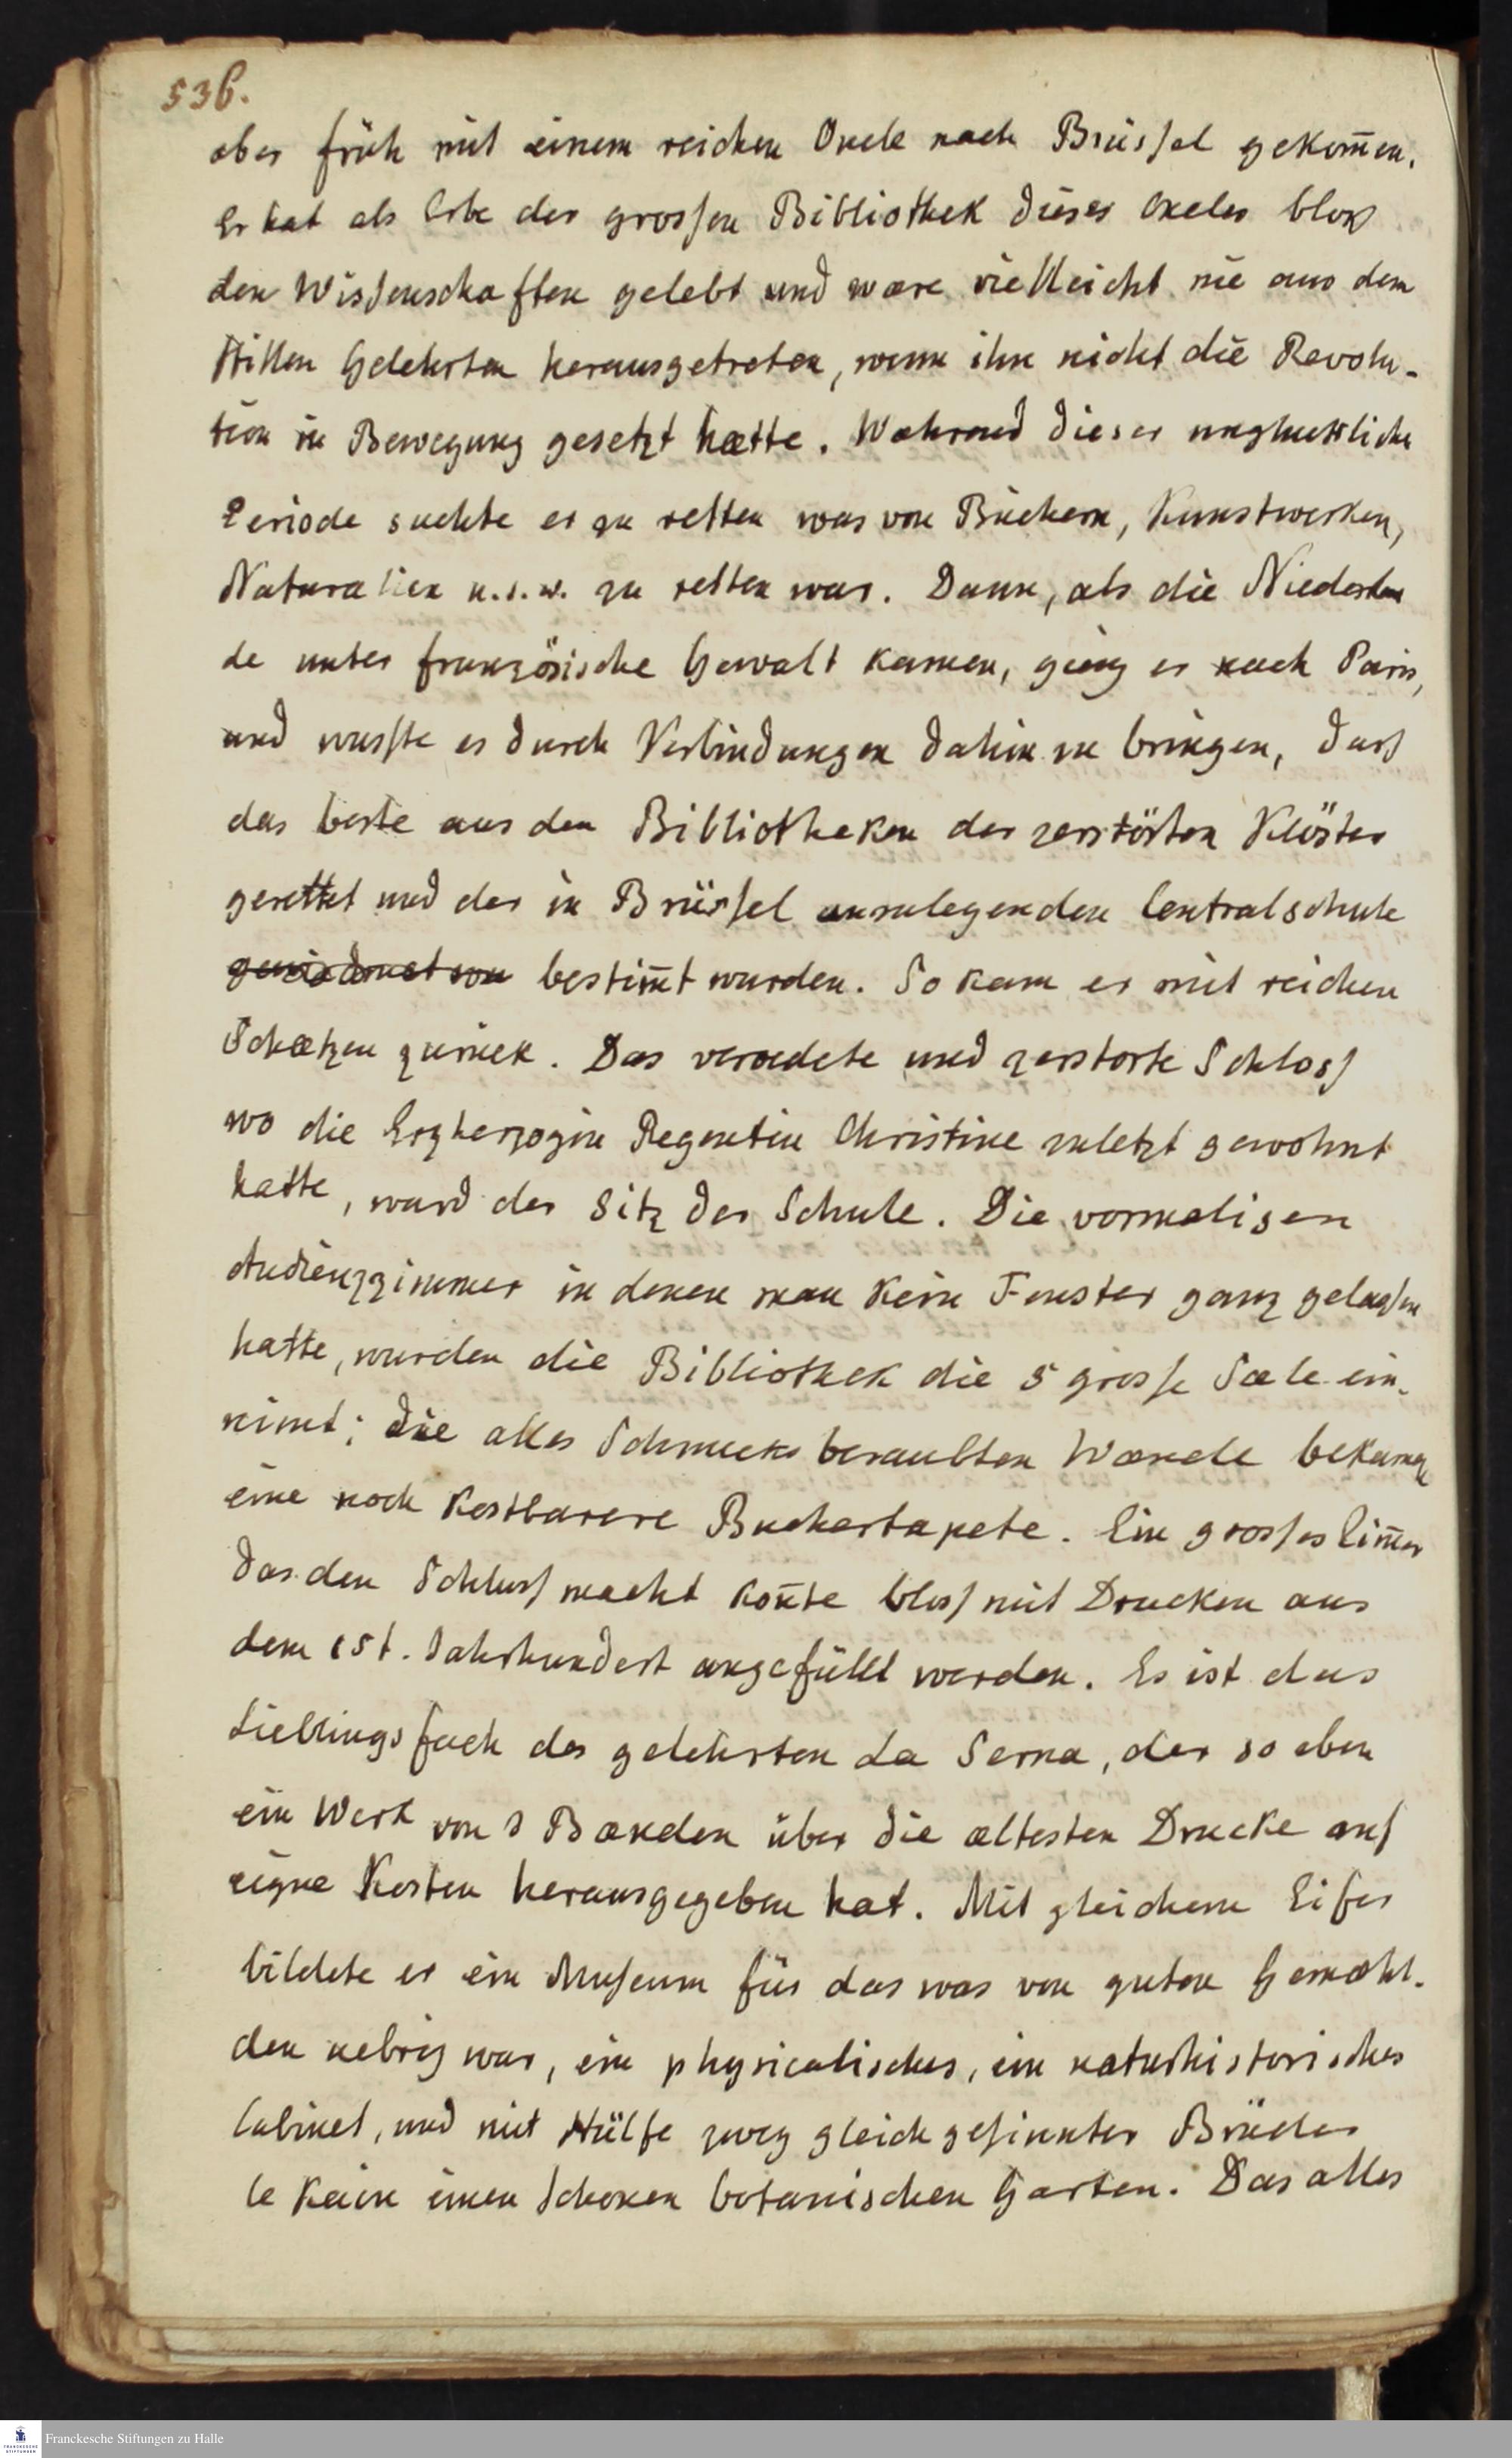 536.
aber früh mit einem reichen Onele nach Brüssel gekom̄en.
Er hat als Erbe der grossen Bibliothek dieses Oncles bloß
den Wissenschaften gelebt und wære vielleicht nie aus dem
stillen Gelehrten herausgetreten, wenn ihn nicht die Revolu-
tion in Bewegung gesetzt hætte. Wæhrend dieser unglueckliche
Periode suchte er zu retten was von Büchern, Kunstwerken,
Naturalien u.s.w. zu retten war. Dann, als die Niederlan
de unter französische Gewalt kamen, ging er nach Paris,
und wusste es durch Verbindungen dahin zu bringen, dass
das beste aus den Bibliotheken der zerstörten Klöster
gerettet und der in Brüssel anzulegenden Centralschule
gewidmet von bestim̄t wurden. So kam er mit reichen
Schætzen zurück. Das veroedete und zerstorte Schloss
wo die Erzherzogin Regentin Christine zuletzt gewohnt
hatte, ward der Sitz der Schule. Die vormaligen
Audienzzimmer in denen man kein Fenster ganz gelassen
hatte, wurden die Bibliothek die 5 grosse Sæle ein-
nimt; die alles Schmucks beraubten Wænde bekamen
eine noch kostbarere Buchertapete. Ein grosses Zim̄er
das den Schluss macht kon̄te bloss mit Drucken aus
dem 15t. Jahrhundert angefüllt werden. Es ist das
Lieblingsfach des gelehrten La Serna, der so eben
ein Werk von 3 Bænden über die æltesten Drucke auf
eigne Kosten herausgegeben hat. Mit gleichem Eifer
bildete er ein Museum für das was von guten Gemæhl-
den uebrig war, ein physicalisches, ein naturhistorisches
Cabinet, und mit Hülfe zwey gleich gesinnter Brüder
le Kein einen schonen botanischen Garten. Das alles
Franckesche Stiftungen zu Halle